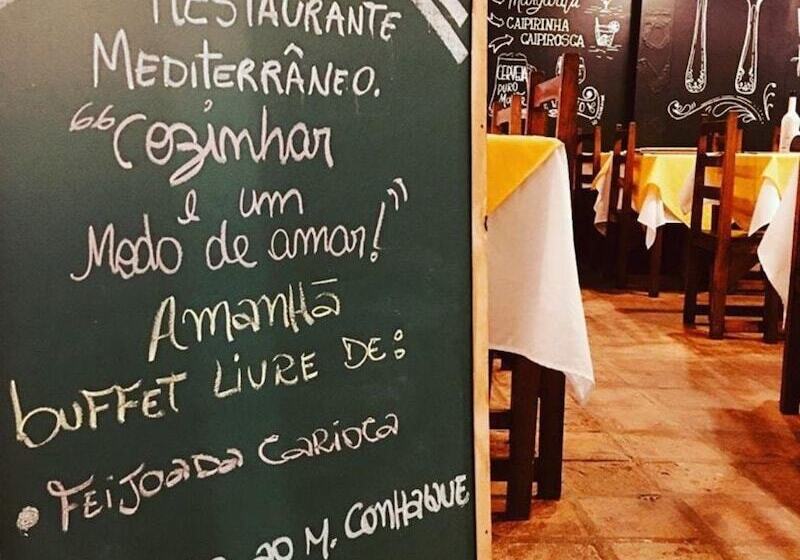 RESTAURANTE
MEDITERRÂNEO.
“Cozinhar
é um
Modo de amar!”
AMANHÃ
BUFFET LIVRE DE:
• FEIJOADA CARIOCA
AO M. CONHAQUE
Margarita
→ CAIPIRINHA
→ CAIPIROSCA
CERVEJA
PURO